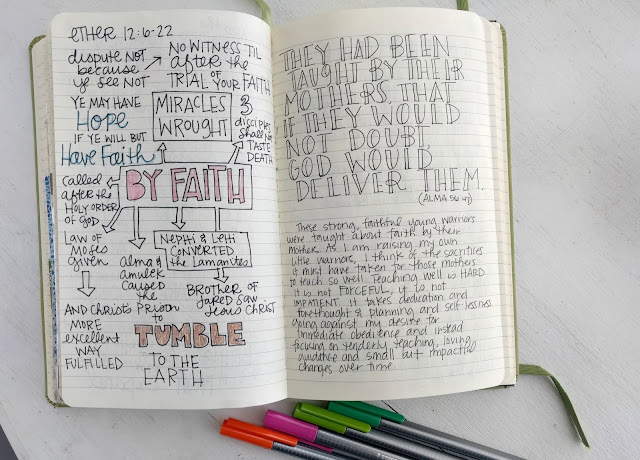 ETHER 12:6-22
dispute NOT
because
ye see NOT
NO WITNESS TIL
after the
TRIAL OF YOUR FAITH
YE MAY HAVE
Hope
IF YE WILL BUT
Have Faith
MIRACLES
WROUGHT
3
disciples
shall NOT
TASTE
DEATH
BY FAITH
called
after the
HOLY ORDER
OF GOD
LAW OF
MOSES
given
AND CHRIST'S
MORE
excellent
WAY
FULFILLED
Alma &
Amulek
CAUSED
the
PRISON
to
TUMBLE
TO THE
EARTH
NEPHI & LEHI
CONVERTED
the Lamanites
BROTHER OF
JARED SAW
JESUS CHRIST
THEY HAD BEEN
TAUGHT BY THEIR
MOTHERS, THAT
IF THEY WOULD
NOT DOUBT,
GOD WOULD
DELIVER THEM.
(ALMA 56:47)
These strong, faithful young warriors
were taught about faith by their
mother. As I am raising my own
little warriors, I think of the sacrifices
it must have taken for those mothers
to teach so well. Teaching well is HARD.
It is not FORCEFUL, it is not
IMPATIENT. It takes dedication and
forethought & planning and selflessness
going against my desire for
immediate obedience and instead
focusing on tenderly teaching, loving
guidance and small but impactful
changes over time.